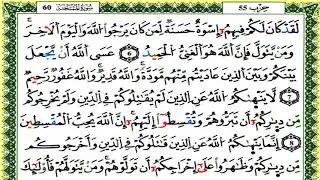 حِزْب 55
سُورَةُ الْمُمْتَحِنَةِ 60
لَقَدْ كَانَ لَكُمْ فِيهِمُ إِسْوَةٌ حَسَنَةٌ لِّمَن كَانَ يَرْجُوا۟ اللَّهَ وَالْيَوْمَ الْآخِرَ
وَمَن يَتَوَلَّ فَإِنَّ اللَّهَ هُوَ الْغَنِيُّ الْحَمِيدُ 6 عَسَى اللَّهُ أَن يَجْعَلَ
بَيْنَكُمْ وَبَيْنَ الَّذِينَ عَادَيْتُم مِّنْهُم مَّوَدَّةً وَاللَّهُ قَدِيرٌ وَاللَّهُ غَفُورٌ رَّحِيمٌ
7 لَّا يَنْهَىٰكُمُ اللَّهُ عَنِ الَّذِينَ لَمْ يُقَٰتِلُوكُمْ فِي الدِّينِ وَلَمْ يُخْرِجُوكُم
مِّن دِيَٰرِكُمْ أَن تَبَرُّوهُمْ وَتُقْسِطُوٓا۟ إِلَيْهِمْ إِنَّ اللَّهَ يُحِبُّ الْمُقْسِطِينَ
8 إِنَّمَا يَنْهَىٰكُمُ اللَّهُ عَنِ الَّذِينَ قَٰتَلُوكُمْ فِي الدِّينِ وَأَخْرَجُوكُم
مِّن دِيَٰرِكُمْ وَظَٰهَرُوا۟ عَلَىٰٓ إِخْرَاجِكُمُ أَن تَوَلَّوْهُمْ وَمَن يَتَوَلَّهُمْ فَأُو۟لَٰٓئِكَ